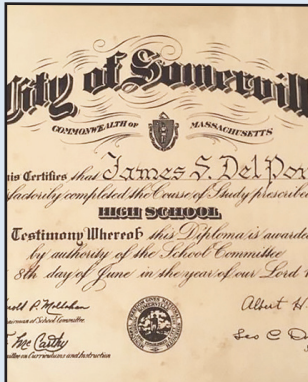 City of Somervill
COMMONWEALTH OF MASSACHUSETTS
is Certifies that James S. Del Por
factorily completed the Course of Study prescribed
HIGH SCHOOL
Testimony Whereof this Diploma is awarded
by authority of the School Committee
8th day of June in the year of our Lord
Albert H.
Chairman of School Committee
Mc Carthy
Leo C. D
ittee on Curriculum and Instruction